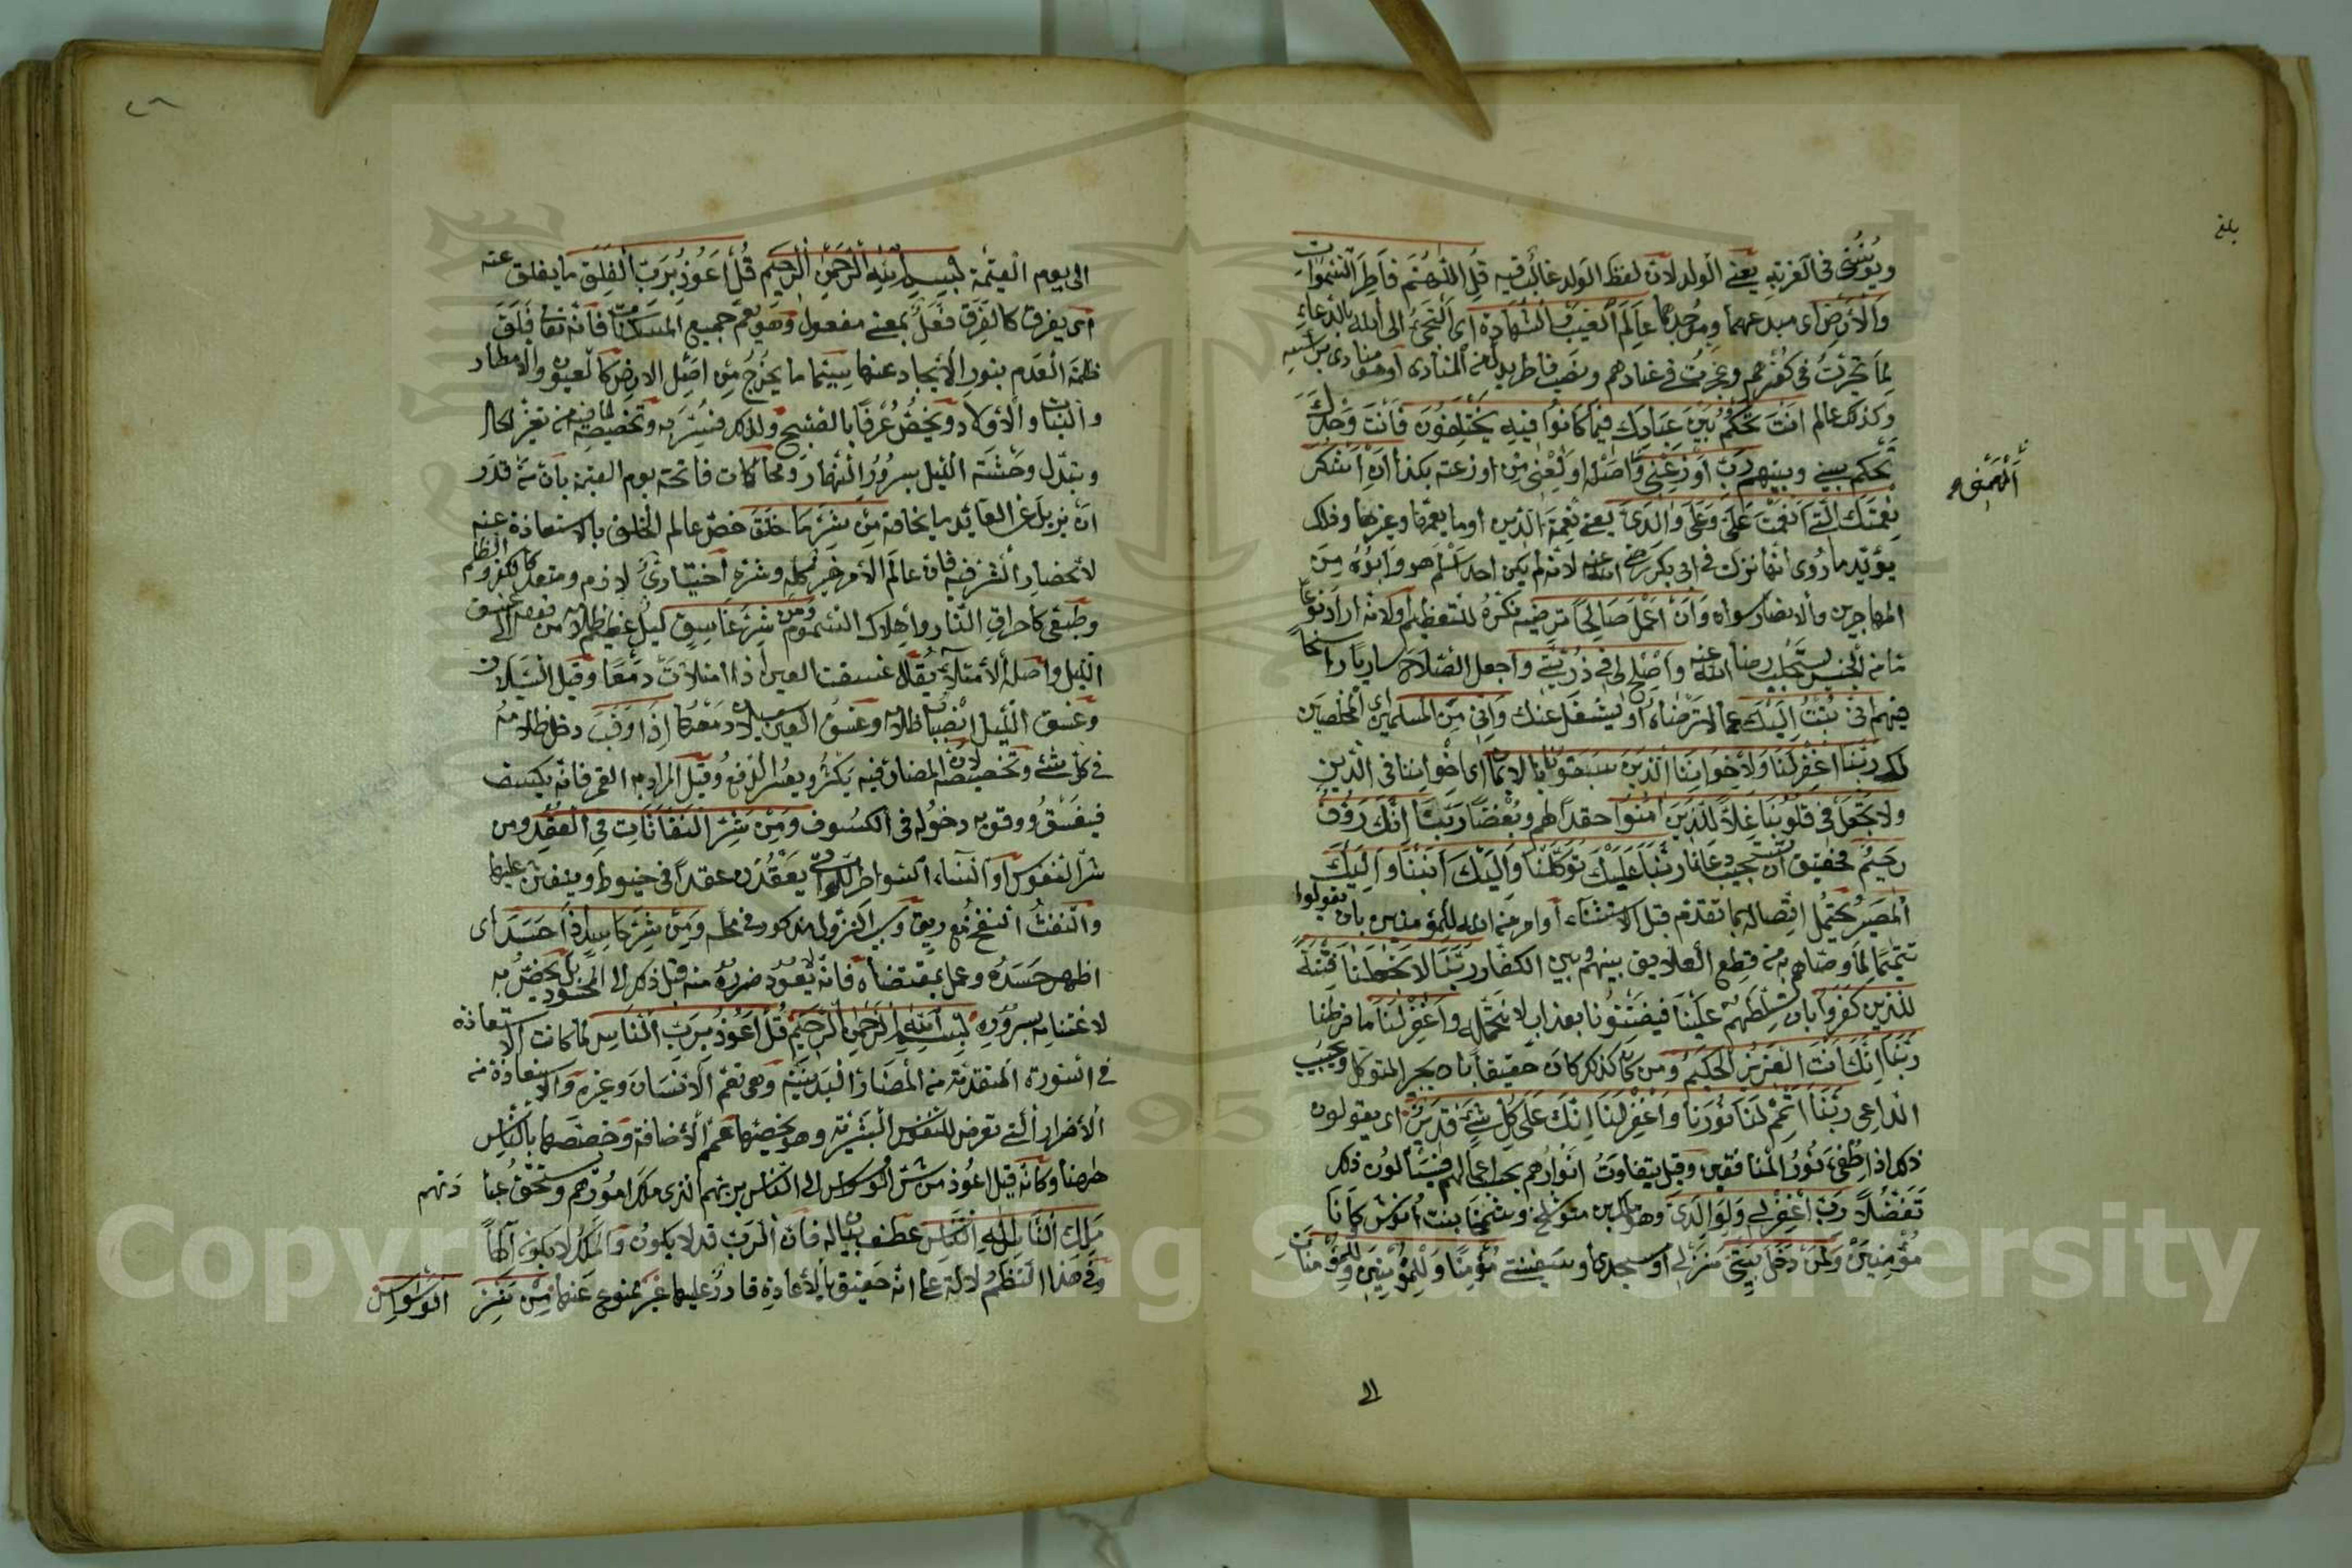 بلغ
ويؤنسني في الغربة يعني الولد لان لفظ الولد غالب فيه قل اللهم فاطر السموات
والارض اى مبدعهما وموجدهما عالم الغيب والشهادة اى التجئ الى الله بالدعاء
لما تحيرت في كفرهم وعجزت في عنادهم ونصب فاطر بدل من المنادى او هو منادى براسه
وكذلك عالم انت تحكم بين عبادك فيما كانوا فيه يختلفون فانت وحدك
تحكم بيني وبينهم رب اوزعني واصله اولعني من اوزعته بكذا ان اشكر
الهمني
نعمتك التى انعمت علي وعلى والدي يعني نعمة الدين او ما يعمها وغيرها وذلك
يؤيد ما روى انها نزلت في ابي بكر رضي الله عنه لانه لم يكن احد اسلم هو وابوه من
المهاجرين والانصار سواه وان اعمل صالحا ترضيه نكره للتعظيم او لانه اراد نوعا
من الجنس يستجلب رضا الله عنه واصلح لي في ذريتي واجعل الصلاح ساريا راسخا
فيهم اني تبت اليك عما لا ترضاه او يشغل عنك واني من المسلمين اى المخلصين
لك ربنا اغفر لنا ولاخواننا الذين سبقونا بالايمان اى اخواننا في الدين
ولا تجعل في قلوبنا غلا للذين امنوا حقدا لهم وبغضا ربنا انك رؤف
رحيم فحقيق ان تستجيب دعانا ربنا عليك توكلنا واليك انبنا واليك
المصير يحتمل اتصاله بما تقدم قبل الاستثناء او امر من الله للمؤمنين بان يقولوا
تتميما لما وصاهم به من قطع العلايق بينهم وبين الكفار ربنا لا تجعلنا فتنة
للذين كفروا بان تسلطهم علينا فيفتنونا بعذاب لا نتحمله واغفر لنا ما فرطنا
ربنا انك انت العزيز الحكيم ومن كان كذلك كان حقيقا بان يجير المتوكل ويجيب
الداعي ربنا اتمم لنا نورنا واغفر لنا انك على كل شئ قدير اى يقولون
ذلك اذا طفئ نور المنافقين وقيل يتفاوت انوارهم بحسب اعمالهم فيسألون ذلك
تفضلا رب اغفر لي ولوالدي وهو لمك بن متوشلخ وشمخا بنت انوش كانا
مؤمنين ولمن دخل بيتي منزلي او مسجدي او سفينتي مؤمنا وللمؤمنين وللمؤمنات
الى
الى يوم القيمة بسم الله الرحمن الرحيم قل اعوذ برب الفلق ما يفلق عنه
اى يفرق كالفرق فعل بمعنى مفعول وهو يعم جميع الممكنات فانه تعالى فلق
ظلمة العدم بنور الايجاد عنها سيما ما يخرج من اصل الارض كالعيون والامطار
والنبات والاولاد ويخص عرفا بالصبح ولذلك فسر به وتخصيصه لما فيه من تغير الحال
وتبدل وحشة الليل بسرور النهار ومحاكات فاتحة يوم القيمة بان من قدر
ان يزيل عن العائذ ما يخافه من شر ما خلق خص عالم الخلق بالاستعاذة عنه
لانحصار الشر فيه فان عالم الامر خير كله وشره اختياري لازم ومتعد كالكفر والظلم
وطبعي كاحراق النار واهلاك السموم ومن شر غاسق ليل عظيم ظلامه من قوله الى غسق
الليل واصله الامتلاء يقال غسقت العين اذا امتلات دمعا وقيل السيلان
وغسق الليل انصباب ظلامه وغسق العين سيلان دمعها اذا وقب دخل ظلامه
في كل شئ وتخصيصه لان المضار فيه يكثر ويعسر الدفع وقيل المراد به القمر فانه يكسف
فيغسق ووقوبه دخوله في الكسوف ومن شر النفاثات في العقد ومن
شر النفوس او النساء السواحر اللواتى يعقدن عقدا في خيوط وينفثن عليها
والنفث النفخ مع ريق وسبب النزول مذكور في محله ومن شر حاسد اذا حسد اى
اظهر حسده وعمل بمقتضاه فانه لا يعود ضرره منه قبل ذلك الى المحسود بل يخص به
لاغتمامه بسروره بسم الله الرحمن الرحيم قل اعوذ برب الناس لما كانت الاستعاذة
في السورة المتقدمة من المضار البدنية وهي تعم الانسان وغيره والاستعاذة منه
الاضرار التى تعرض للنفوس البشرية وهو يخصها عمم الاضافة وخصصها بالناس
ههنا وكانه قيل اعوذ من شر الوسواس الى الناس بربهم الذى ملك امورهم ويستحق عبادتهم
ملك الناس اله الناس عطف بيان له فان الرب قد لا يكون والملك لا يكون الها
وفي هذا النظم دلالة على انه حقيق بالاعاذة قادر عليها غير ممنوع عنها من شر الوسواس
Copyright © King Saud University